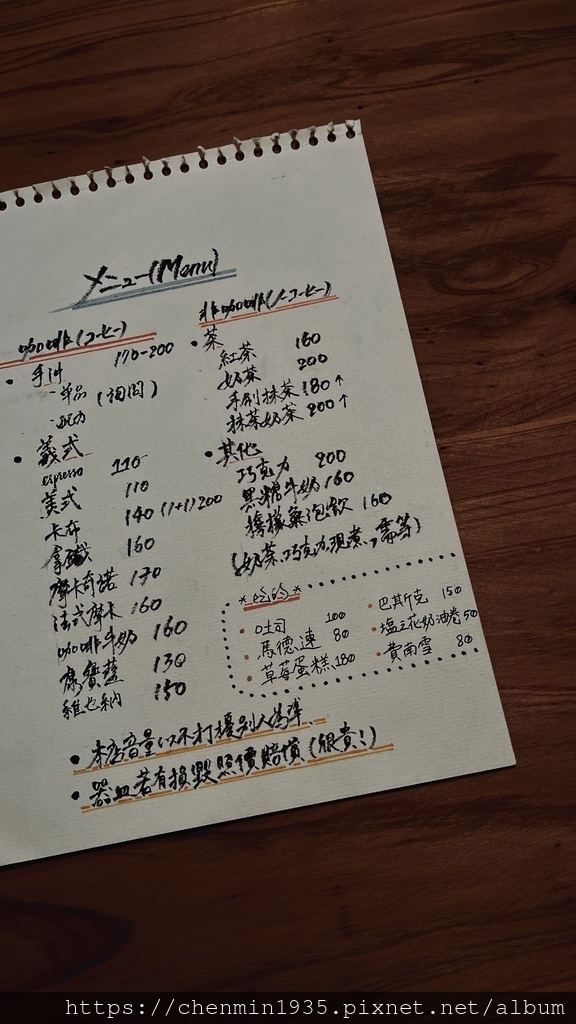 メニュー(Menu)
咖啡(コーヒー)
手沖 170-200
-單品 (詢問)
-配方
義式
espresso 110
美式 110
卡布 140 (1+1)200
拿鐵 160
摩卡奇諾 170
法式摩卡 160
咖啡牛奶 160
康寶藍 130
維也納 150
非咖啡(ノーコーヒー)
茶
紅茶 160
奶茶 200
手刷抹茶 180↑
抹茶奶茶 200↑
其他
巧克力 200
黑糖牛奶 160
檸檬氣泡飲 160
(奶茶.巧克力現煮,需等)
*吃的*
吐司 100
馬德連 80
草莓蛋糕 180
巴斯克 150
塩之花奶油卷 50
費南雪 80
本店音量以不打擾別人為準、
器皿若有損毀照價賠償(很貴!)
https://chenmin1935.pixnet.net/album